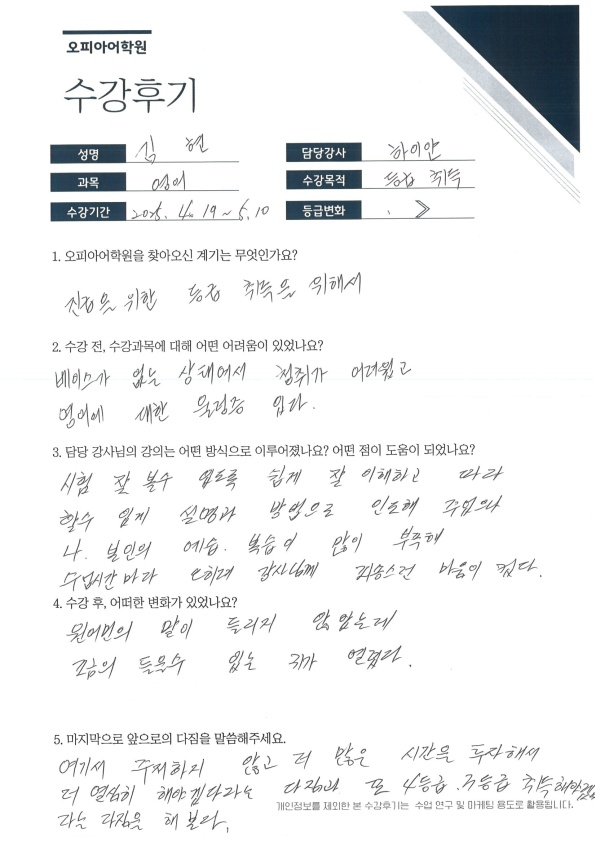 오피아어학원
수강후기
성명 김 현
담당강사 하이얀
과목 영어
수강목적 등급 취득
수강기간 2025. 4. 19 ~ 5. 10
등급변화 . 》
1. 오피아어학원을 찾아오신 계기는 무엇인가요?
진급을 위한 등급 취득을 위해서
2. 수강 전, 수강과목에 대해 어떤 어려움이 있었나요?
베이스가 없는 상태여서 청취가 어려웠고
영어에 대한 울렁증 입다.
3. 담당 강사님의 강의는 어떤 방식으로 이루어졌나요? 어떤 점이 도움이 되었나요?
시험 잘 볼수 있도록 쉽게 잘 이해하고 따라
할수 있게 설명과 방법으로 인도해 주었으나
나. 본인의 예습. 복습이 많이 부족해
수업시간마다 오히려 강사님께 죄송스런 마음이 컸다.
4. 수강 후, 어떠한 변화가 있었나요?
원어민의 말이 들리지 않았는데
조금의 들을수 있는 귀가 열렸다.
5. 마지막으로 앞으로의 다짐을 말씀해주세요.
여기서 주저하지 않고 더 많은 시간을 투자해서
더 열심히 해야겠다라는 다짐과 또 4등급. 3등급 취득해야겠
다는 다짐을 해 본다.
개인정보를 제외한 본 수강후기는 수업 연구 및 마케팅 용도로 활용됩니다.